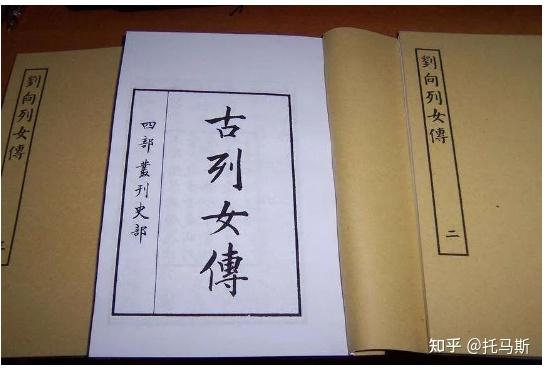 劉向列女傳
古列女傳
四部叢刊史部
劉向列女傳
二
知乎 @托马斯